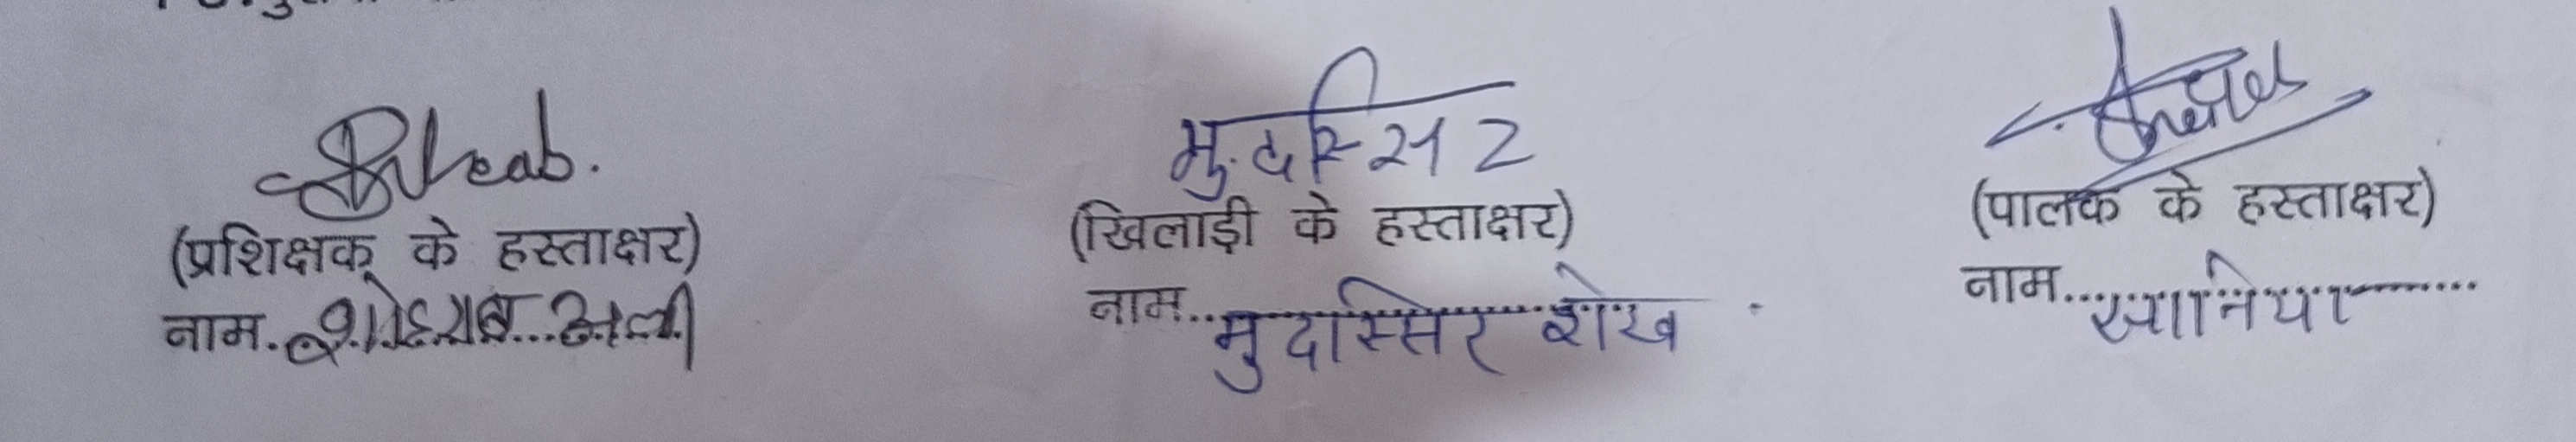 (प्रशिक्षक के हस्ताक्षर)
नाम. अली
मुदस्सिर
(खिलाड़ी के हस्ताक्षर)
नाम.. मुदास्सिर शेख
(पालक के हस्ताक्षर)
नाम... सानिया